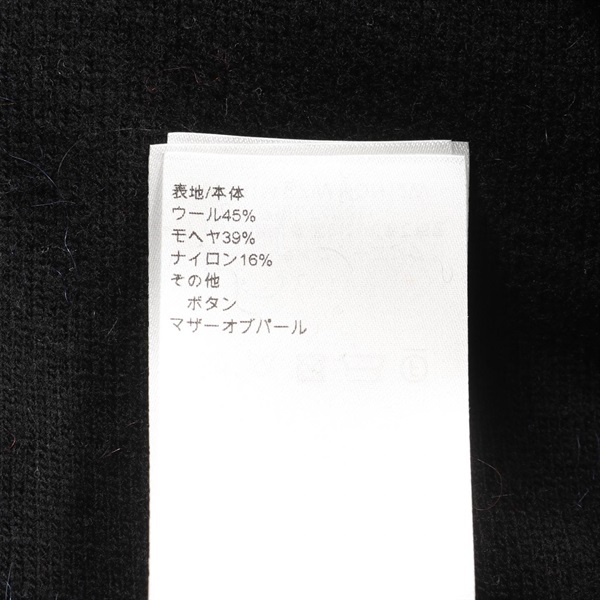 表地/本体
ウール45%
モヘヤ39%
ナイロン16%
その他
　ボタン
マザーオブパール